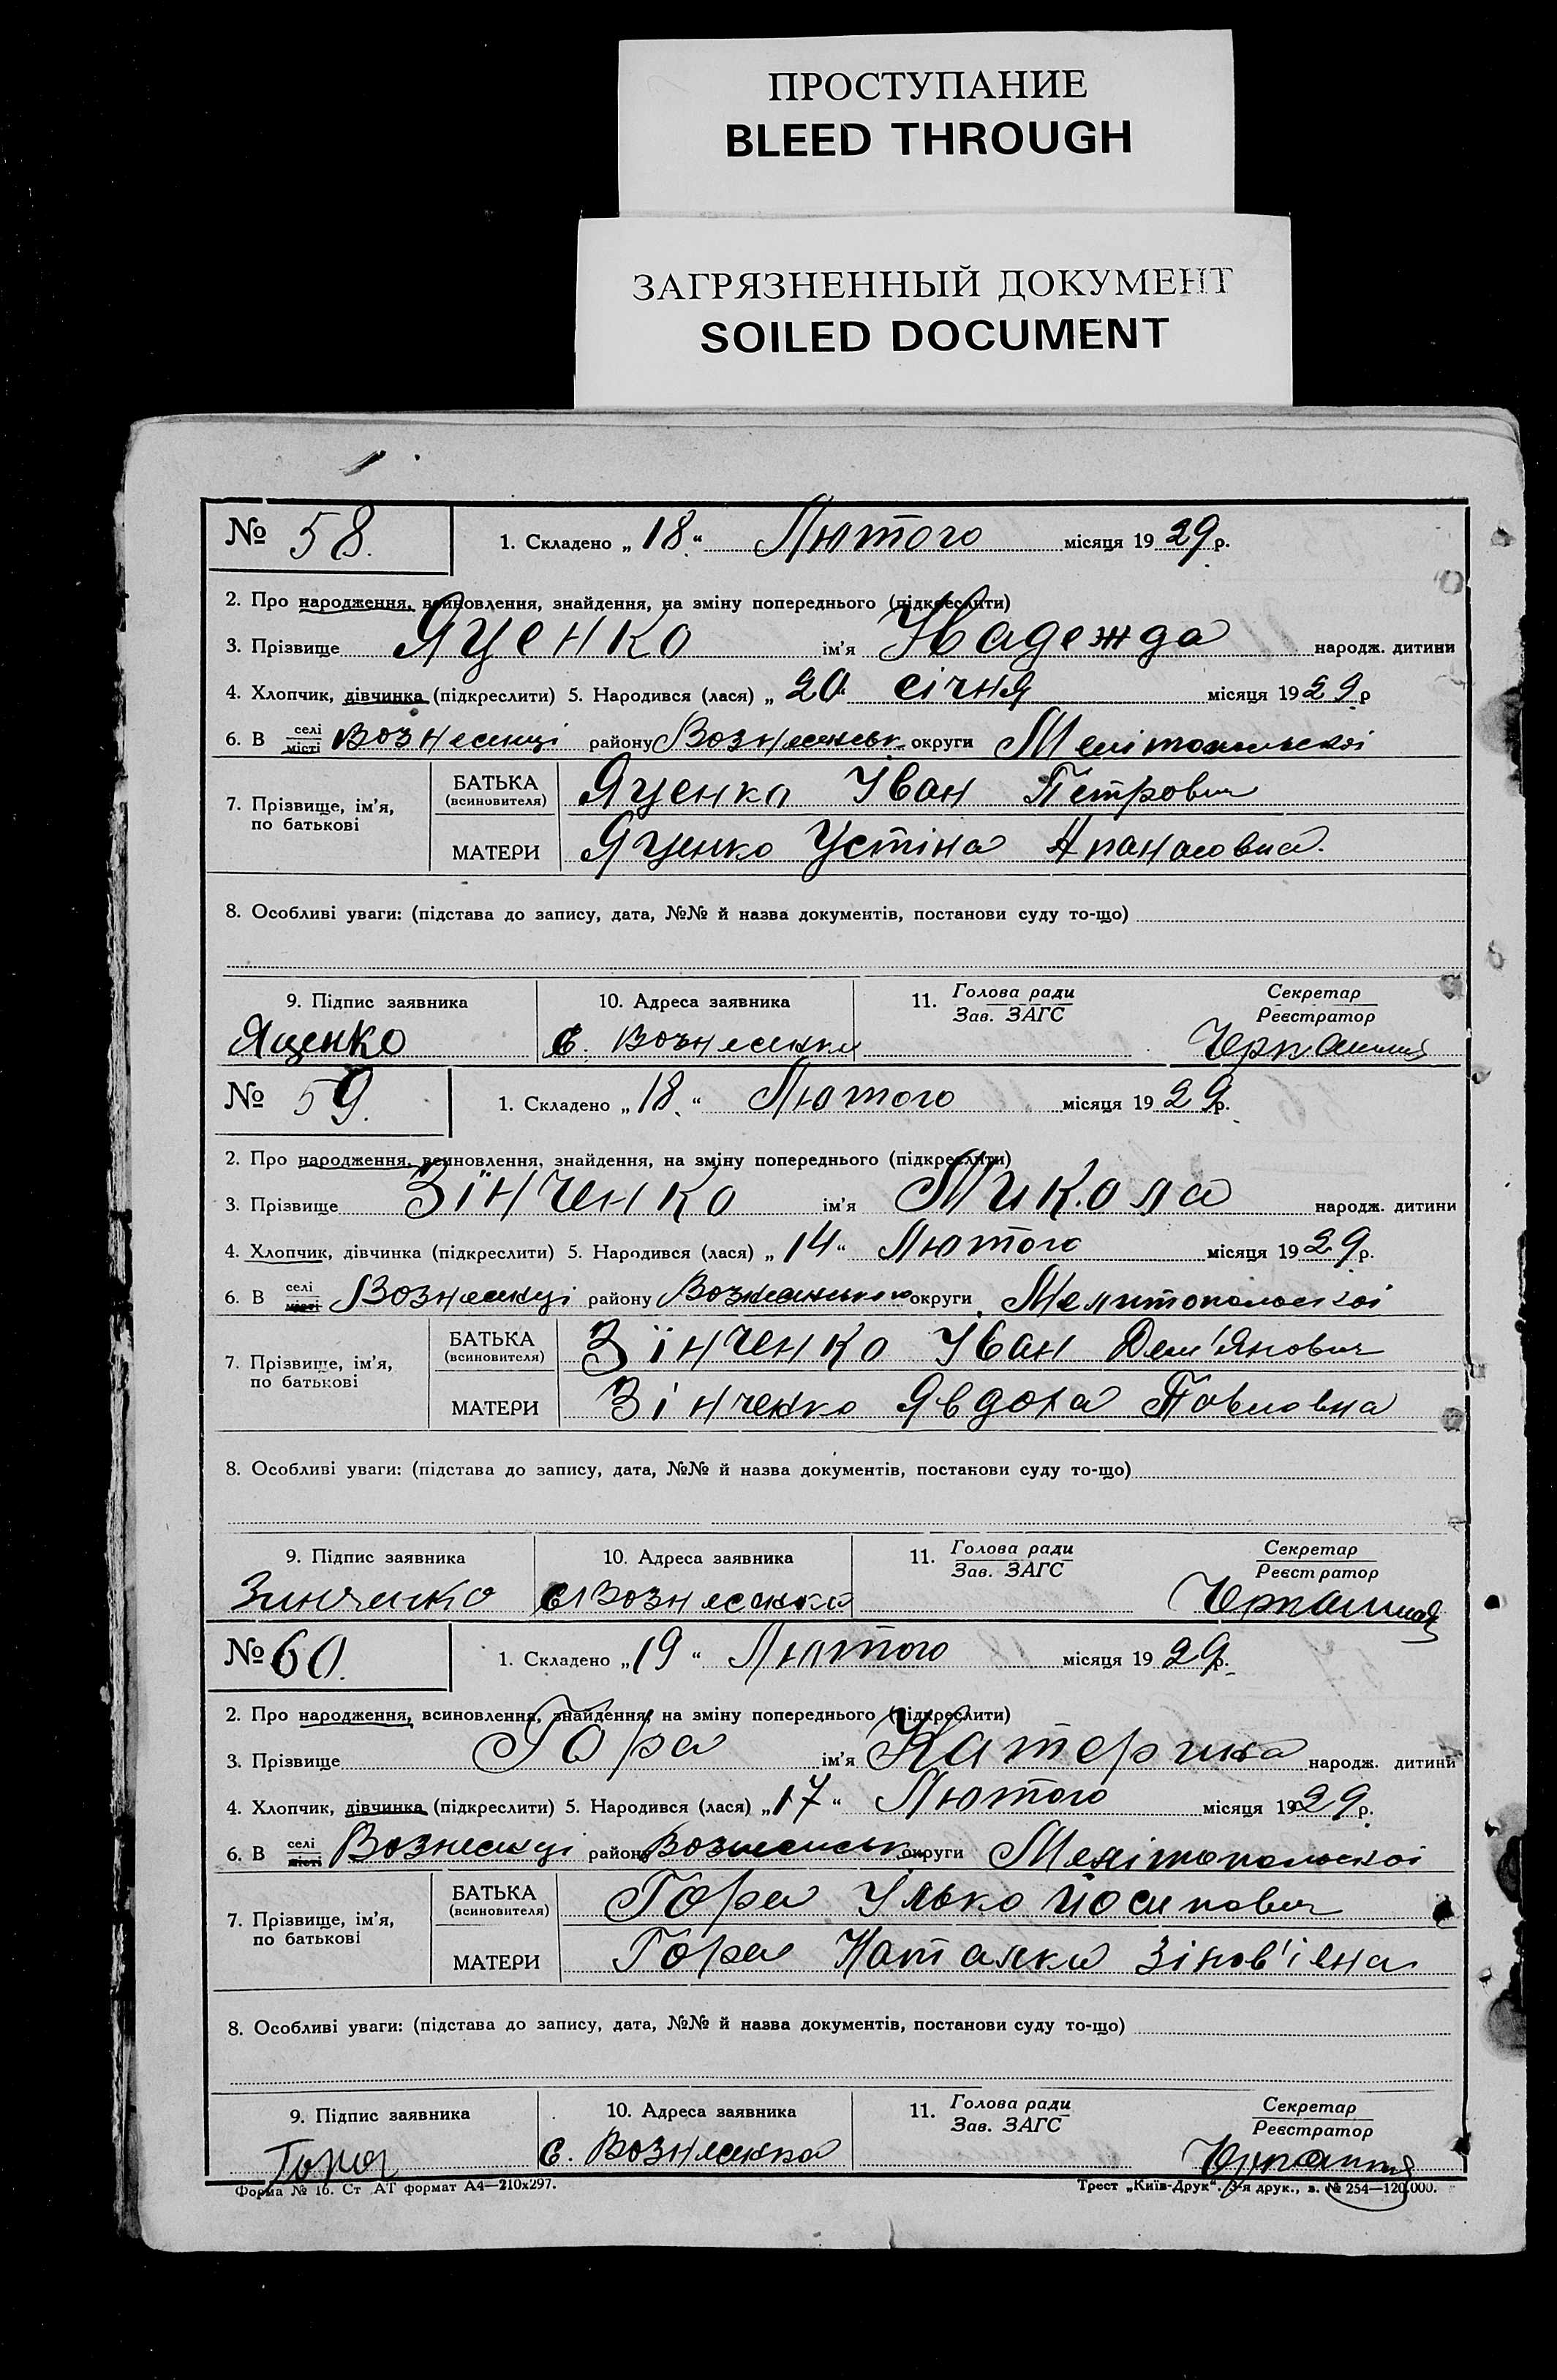 ПРОСТУПАНИЕ
BLEED THROUGH
ЗАГРЯЗНЕННЫЙ ДОКУМЕНТ
SOILED DOCUMENT
№ 58. 1. Складено „18“ Лютого місяця 1929 р.
2. Про народження, всиновлення, знайдення, на зміну попереднього (підкреслити)
3. Прізвище Яценко ім'я Надежда народж. дитини
4. Хлопчик, дівчинка (підкреслити) 5. Народився (лася) „20 січня місяця 1929 р
6. В селі місті Вознесенці району Вознесенськ. округи Мелітопольскоі
7. Прізвище, ім'я, по батькові
БАТЬКА (всиновителя) Яценко Іван Петрович
МАТЕРИ Яценко Устіна Апанасовна.
8. Особливі уваги: (підстава до запису, дата, №№ й назва документів, постанови суду то-що)
9. Підпис заявника 10. Адреса заявника 11. Голова ради Зав. ЗАГС Секретар Реєстратор
Яценко с. Вознесенка
№ 59. 1. Складено „18.“ Лютого місяця 1929 р.
2. Про народження, всиновлення, знайдення, на зміну попереднього (підкреслити)
3. Прізвище Зінченко ім'я Микола народж. дитини
4. Хлопчик, дівчинка (підкреслити) 5. Народився (лася) „14“ Лютого місяця 1929 р.
6. В селі місті Вознесенці району Вознесенського округи Мелитопольскоі
7. Прізвище, ім'я, по батькові
БАТЬКА (всиновителя) Зінченко Іван Дем'янович
МАТЕРИ Зінченко Явдоха Павловна
8. Особливі уваги: (підстава до запису, дата, №№ й назва документів, постанови суду то-що)
9. Підпис заявника 10. Адреса заявника 11. Голова ради Зав. ЗАГС Секретар Реєстратор
Зинченко с Вознесенка
№ 60. 1. Складено „19“ Лютого місяця 1929 р.
2. Про народження, всиновлення, знайдення, на зміну попереднього (підкреслити)
3. Прізвище Гора ім'я Катерина народж. дитини
4. Хлопчик, дівчинка (підкреслити) 5. Народився (лася) „17“ Лютого місяця 1929 р.
6. В селі місті Вознесенці району Вознесенськ. округи Мелітопольскоі
7. Прізвище, ім'я, по батькові
БАТЬКА (всиновителя) Гора Улько Йосипович
МАТЕРИ Гора Наталка Зінов'івна
8. Особливі уваги: (підстава до запису, дата, №№ й назва документів, постанови суду то-що)
9. Підпис заявника 10. Адреса заявника 11. Голова ради Зав. ЗАГС Секретар Реєстратор
Гора с. Вознесенка
Форма № 16. Ст АТ формат А4—210х297. Трест „Київ-Друк“. 3-я друк., з. № 254—120.000.